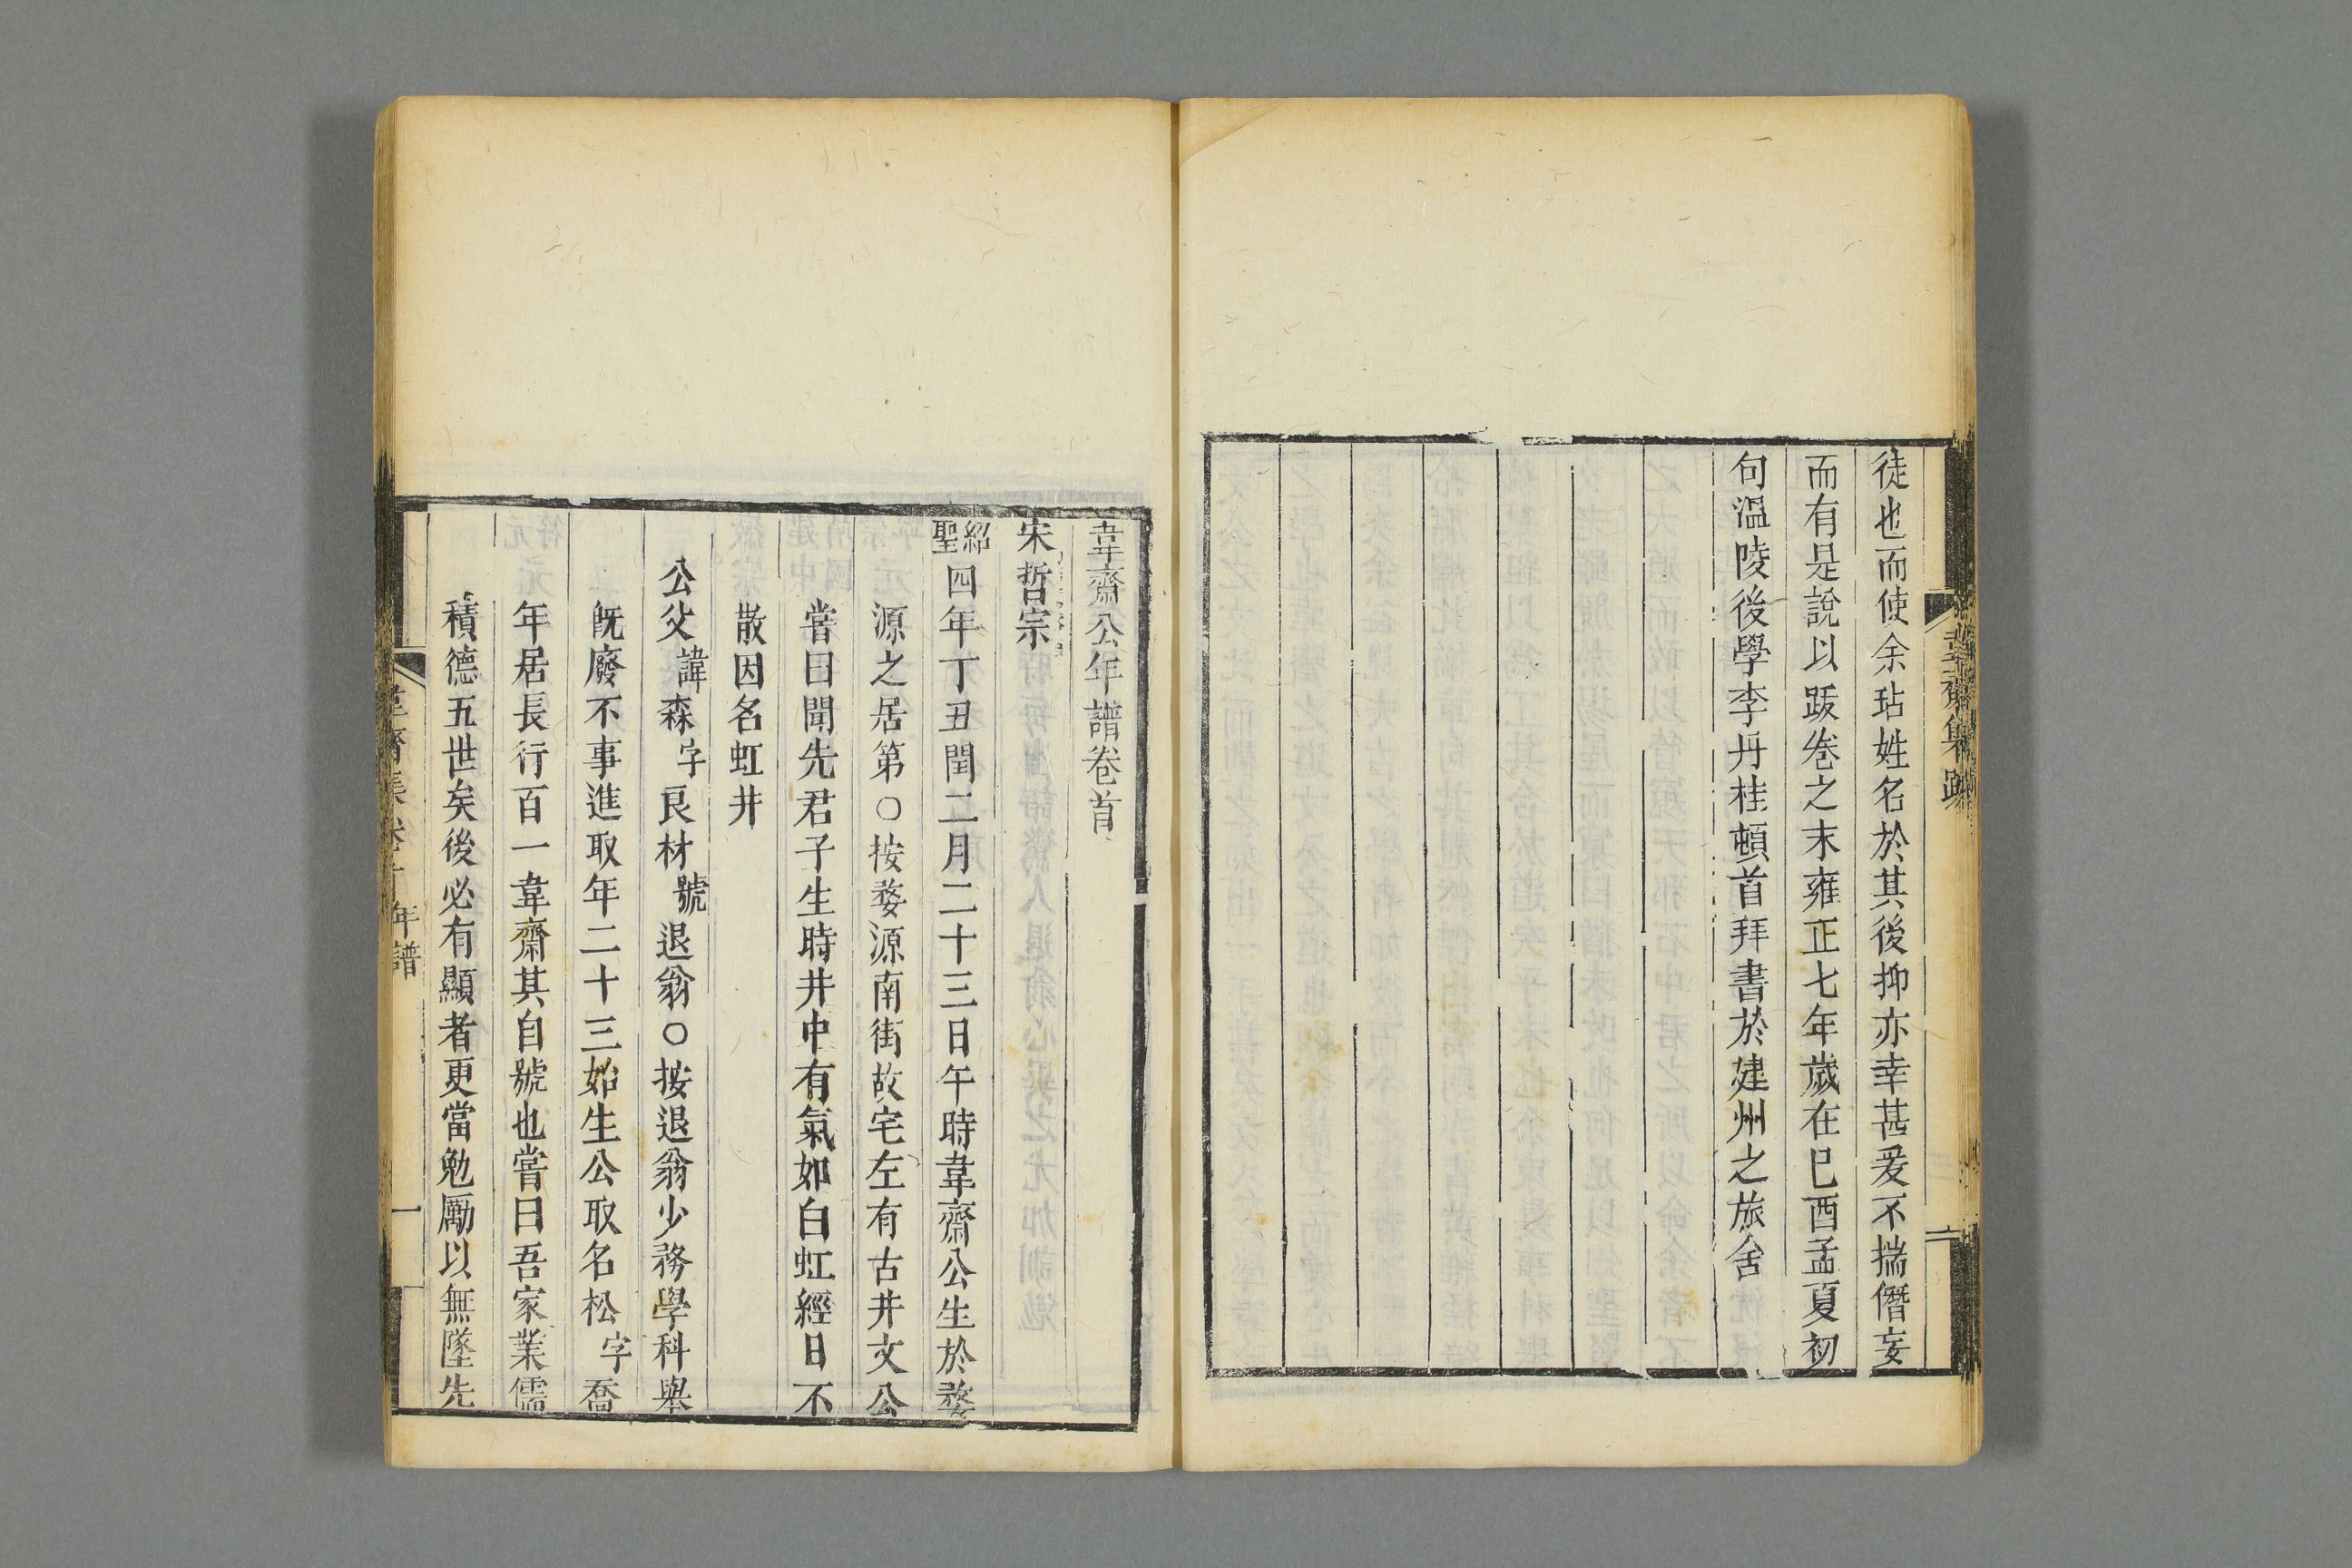 徒也而使余玷姓名於其後抑亦幸甚爰不揣僭妄
而有是說以跋卷之末雍正七年歲在巳酉孟夏初
句溫陵後學李丹桂頓首拜書於建州之旅舍
韋齋公年譜卷首
宋哲宗
紹聖四年丁丑閏二月二十三日午時韋齋公生於婺
源之居第○按婺源南街故宅左有古井文公
嘗曰聞先君子生時井中有氣如白虹經日不
散因名虹井
公父諱森字良材號退翁○按退翁少務學科舉
既廢不事進取年二十三始生公取名松字喬
年居長行百一韋齋其自號也嘗曰吾家業儒
積德五世矣後必有顯者更當勉厲以無墜先
韋齋集 年譜 一